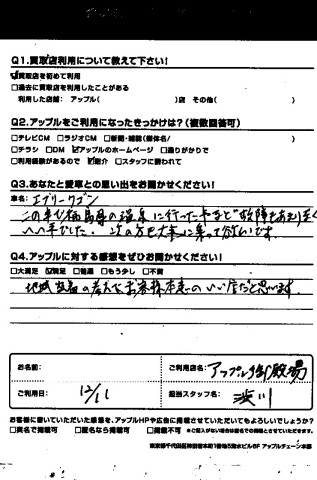 Q1.買取店利用について教えて下さい!
☑買取店を初めて利用
□過去に買取店を利用したことがある
利用した店舗: アップル( )店 その他( )
Q2.アップルをご利用になったきっかけは?(複数回答可)
□テレビCM □ラジオCM □新聞・雑誌(媒体名/ )
□チラシ □DM ☑アップルのホームページ □通りがかりで
□利用経験があるので ☑紹介 □スタッフに誘われて
Q3.あなたと愛車との思い出をお聞かせください!
車名: エブリーワゴン
この車で福島県の温泉に行った 故障もあまりなく
いい車でした。次の方も大事に乗って欲しいです。
Q4.アップルに対する感想をぜひお聞かせください!
□大満足 ☑満足 □普通 □もう少し □不満
地域 の考えで、お客様本意のいい店だと思います。
お名前:
ご利用店名: アップル御殿場
ご利用日: 12/11
担当スタッフ名: 渋川
お客様に書いていただいた感想を、アップルHPや広告に掲載させていただいてもよろしいでしょうか?
□実名で掲載可 □匿名なら掲載可 □掲載不可 ※ご記入がない場合は匿名での掲載とさせていただきます。